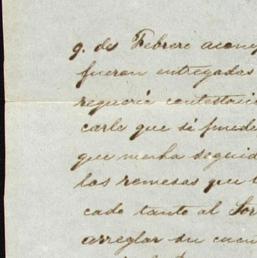 9. des Febrero acom
fueron entregadas
requerié contestaci
carle que si puede
que mucha seguid
las remesas que t
cado tanto al Sor
arreglar su cuen